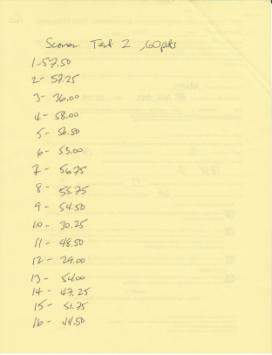 Scores Test 2, 60pts
1-57.50
2- 57.25
3- 36.00
4- 58.00
5- 56.50
6- 55.00
7- 56.75
8- 55.75
9- 54.50
10- 30.25
11- 48.50
12- 29.00
13- 54.00
14- 47.25
15- 51.75
16- 48.50